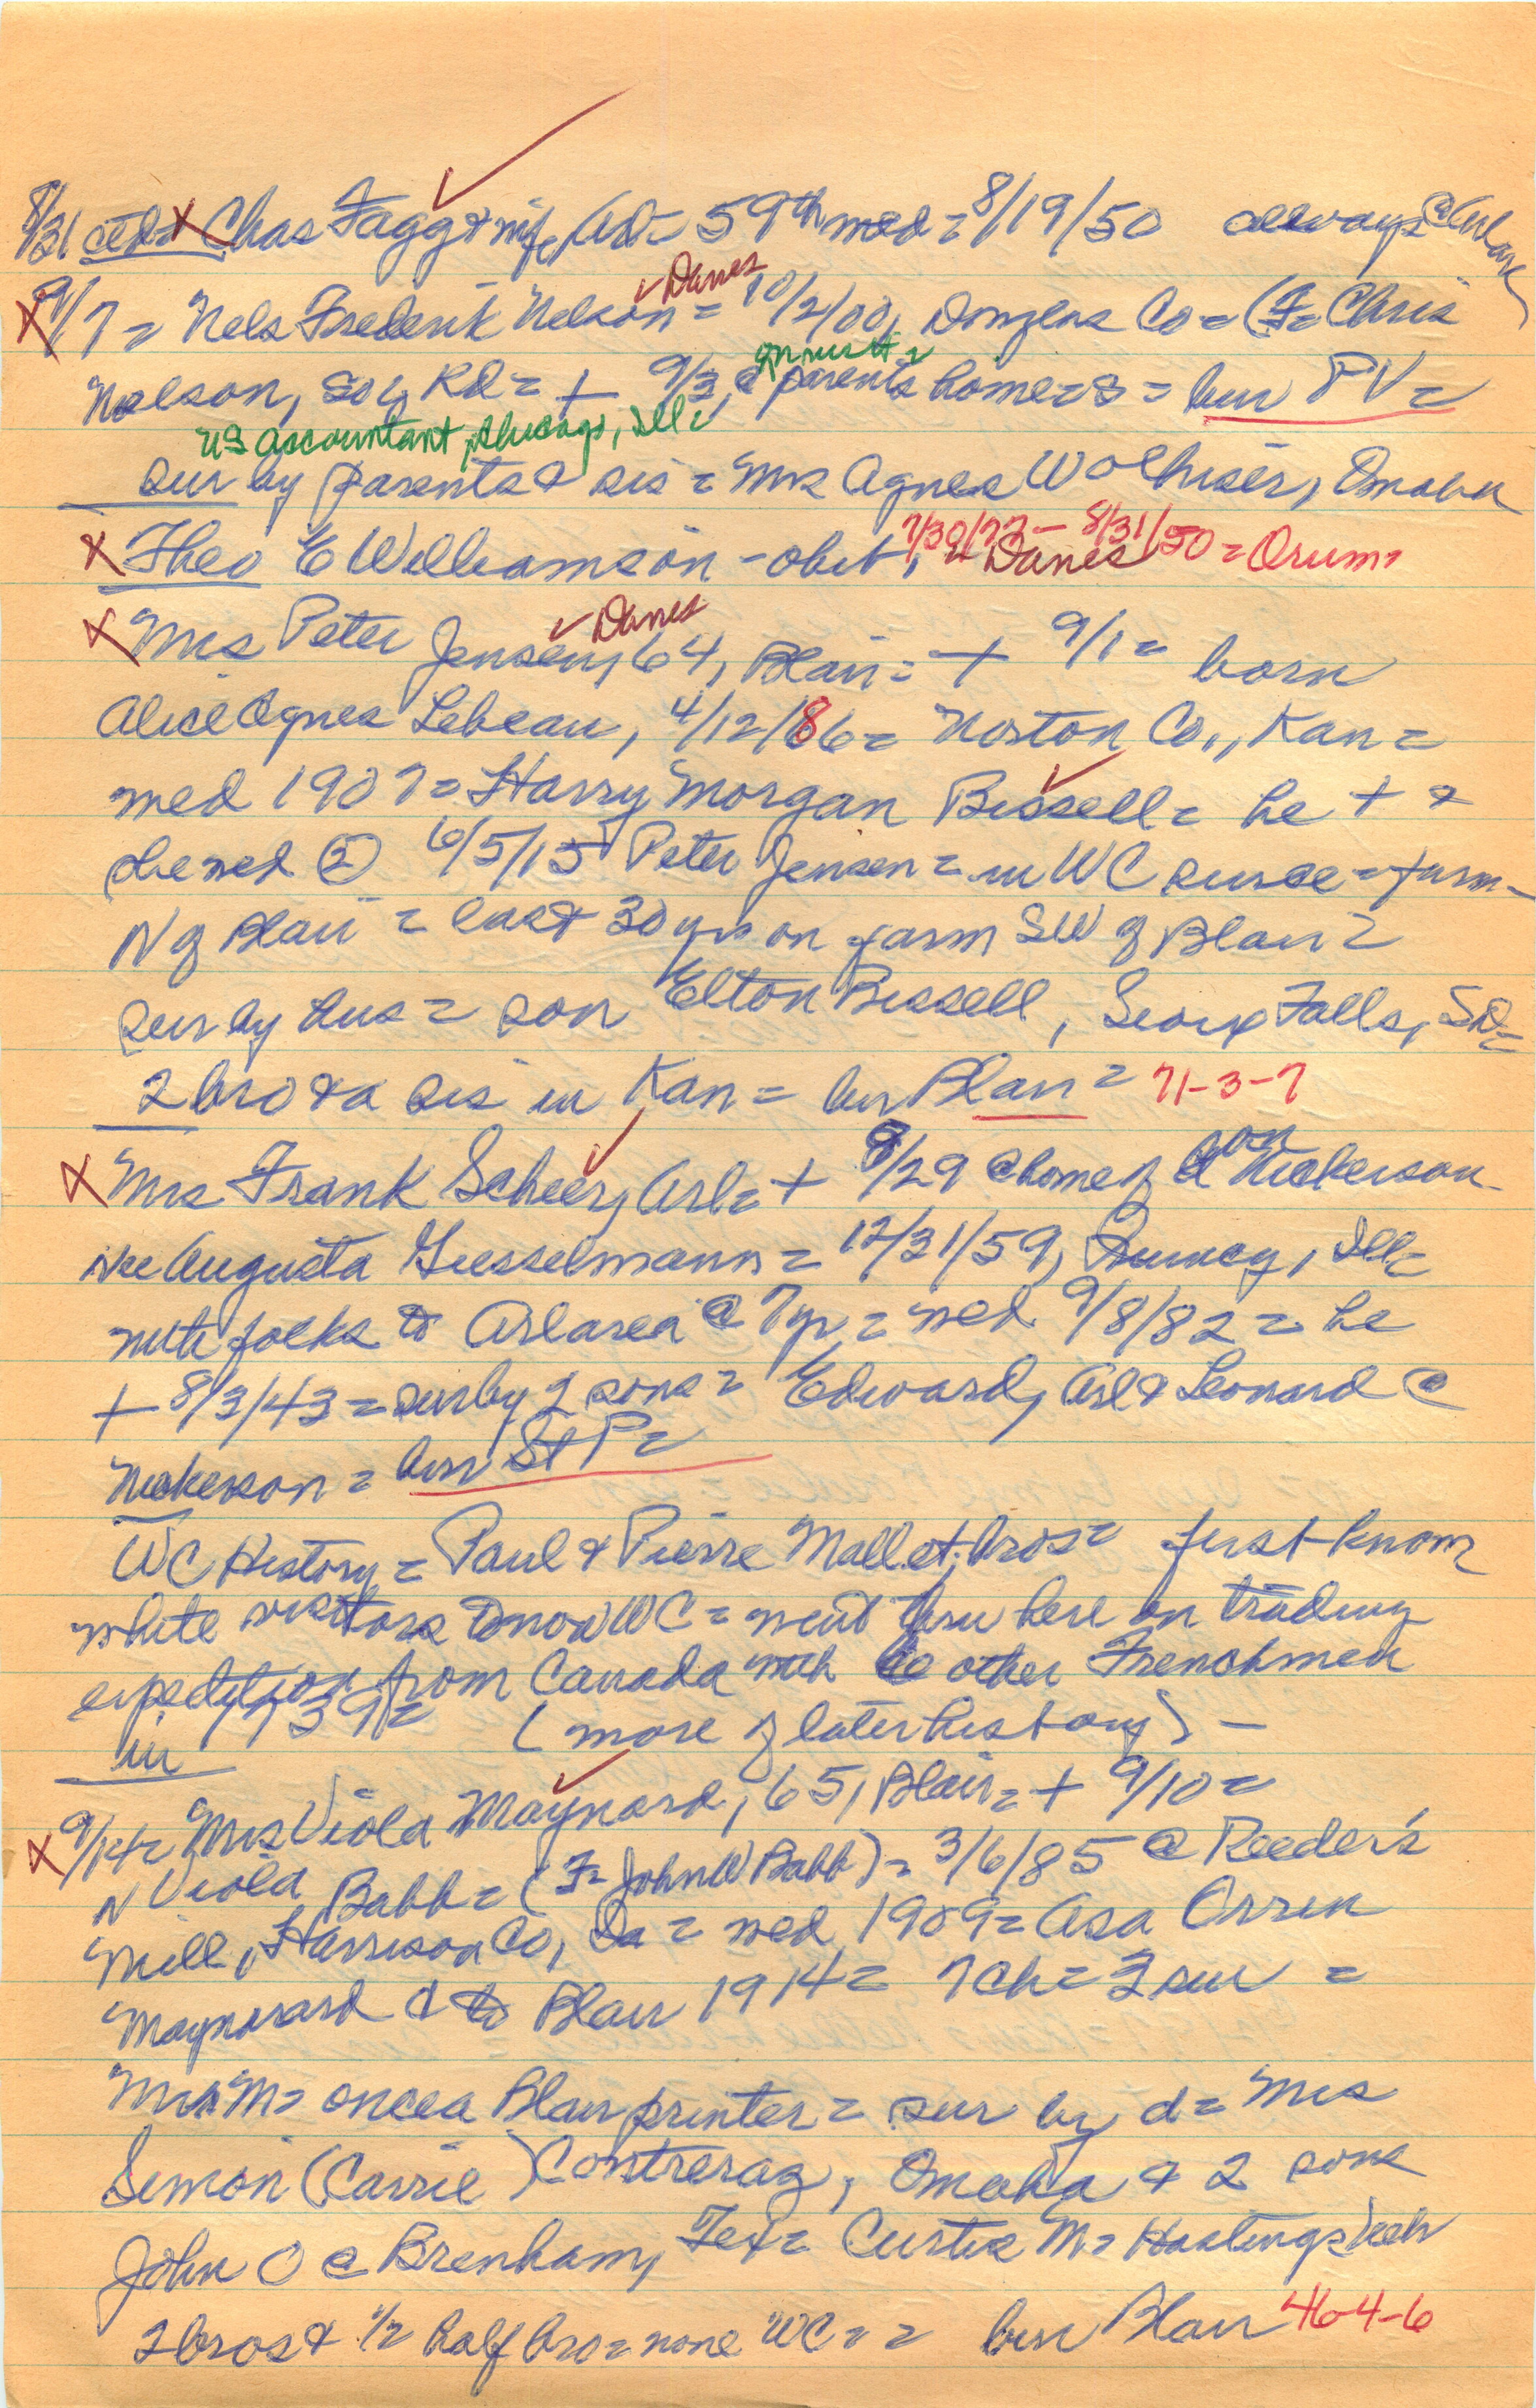 8/31 ctd = x Chas Fagg & wife, Arl = 59th wed = 8/19/50 always @ Arl area
x 9/7 = Nels Frederik Nelson = ✓ Danes 10/2/00, Douglas Co = (F = Chris
Nelson, Sol, Rd = + 9/3, @ parents home = s = bur PV =
US accountant, Chicago, Ill =
sur by parents & sis = Mrs Agnes Wolhuser, Omaha
x Theo E Williamson - obit, 7/30/77 - 8/31/50 = Orum =
" Danes
x Mrs Peter Jensen, 64, Blair = + 9/1 = born
✓ Danes
Alice Agnes Lebeau, 4/12/86 = Norton Co., Kan =
wed 1907 = Harry Morgan Bissell = he + &
she wed (2) 6/5/15 Peter Jensen = in WC since = farm -
N of Blair = last 30 yrs on farm SW of Blair =
sur by hus = son Elton Bissell, Sioux Falls, SD =
2 bro & a sis in Kan = bur Blair = 71-3-7
x Mrs Frank Scheer, Arl = + 8/29 @ home of son Nickerson -
Nee Augusta Giesselmann = 12/31/59, Quincy, Ill =
with folks to Arl area @ 7 yr = wed 9/8/82 = he
+ 8/3/43 = sur by 2 sons = Edward, Arl & Leonard @
Nickerson = bur St P =
WC History = Paul & Pierre Mallet, bros = first known
white visitors to now WC = went thru here on trading
expedition from Canada with 6 other Frenchmen
in 1739 = (more of later history) -
x 9/14 = Mrs Viola Maynard, 65, Blair = + 9/10 =
N Viola Babb = (F = John W Babb) = 3/6/85 @ Reeder's
Mill, Harrison Co, Ia = wed 1909 = Asa Orren
Maynard & to Blair 1914 = 7 ch = 3 sur =
Mr M = once a Blair printer = sur by d = Mrs
Simon (Carrie) Contreraz, Omaha & 2 sons
John O @ Brenham, Tex = Curtis M = Hastings, Neb
2 bros & 1/2 half bro = none WC = = bur Blair 46-4-6